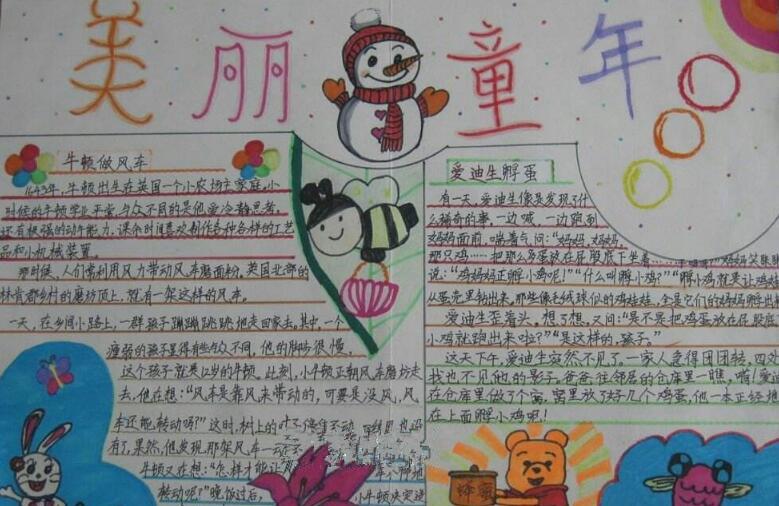 美丽童年
牛顿做风车
1643年，牛顿出生在英国一个小农场主家庭。小
时候的牛顿学业平常，与众不同的是他爱冷静思考，
还有极强的动手能力，课余时间喜欢制作各种各样的工艺
品和小机械装置。
那时候，人们常利用风力带动风车磨面粉，英国北部的
林肯郡乡村的磨坊顶上，就有一架这样的风车。
一天，在乡间小路上，一群孩子蹦蹦跳跳地走回家去，其中，一个
瘦弱的孩子显得有些与众不同，他的脚步很慢，
这个孩子就是12岁的牛顿。此刻，小牛顿正朝风车磨坊走
去，他在想：“风车是靠风来带动的，可要是没风，风
车还能转动吗？”这时，树上的叶子停住不动
有了，果然，他发现那架风车一动不
牛顿又在想：“怎样才能让那
转动呢？”晚饭过后，
小牛顿决定进
爱迪生孵蛋
有一天，爱迪生像是发现了什
么稀奇的事，一边喊，一边跑到
妈妈面前，喘着气问：“妈妈，妈妈，
那只鸡……把那么多蛋放在屁股底下坐着
说：“鸡妈妈正孵小鸡呢！”“什么叫孵小鸡？”“孵小鸡就是让小鸡
从蛋壳里钻出来，那些像毛绒球似的鸡娃娃，全是它们的妈妈孵出
爱迪生歪着头，想了想，又问：“是不是把鸡蛋放在屁股底下
小鸡就跑出来啦？”“是这样的，孩子。”
这天下午，爱迪生突然不见了。一家人急得团团转，四处
找也不见他的影子。爸爸往邻居的仓库里一瞧，嗬！爱迪
在仓库里做了个窝，窝里放了好几个鸡蛋，他一本正经地
在上面孵小鸡呢！
蜂蜜